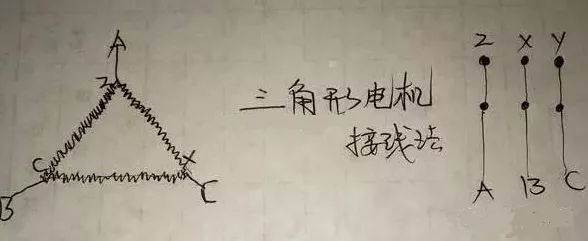 A
Z
C
X
B
C
三角形电机
接线法
Z X Y
A B C